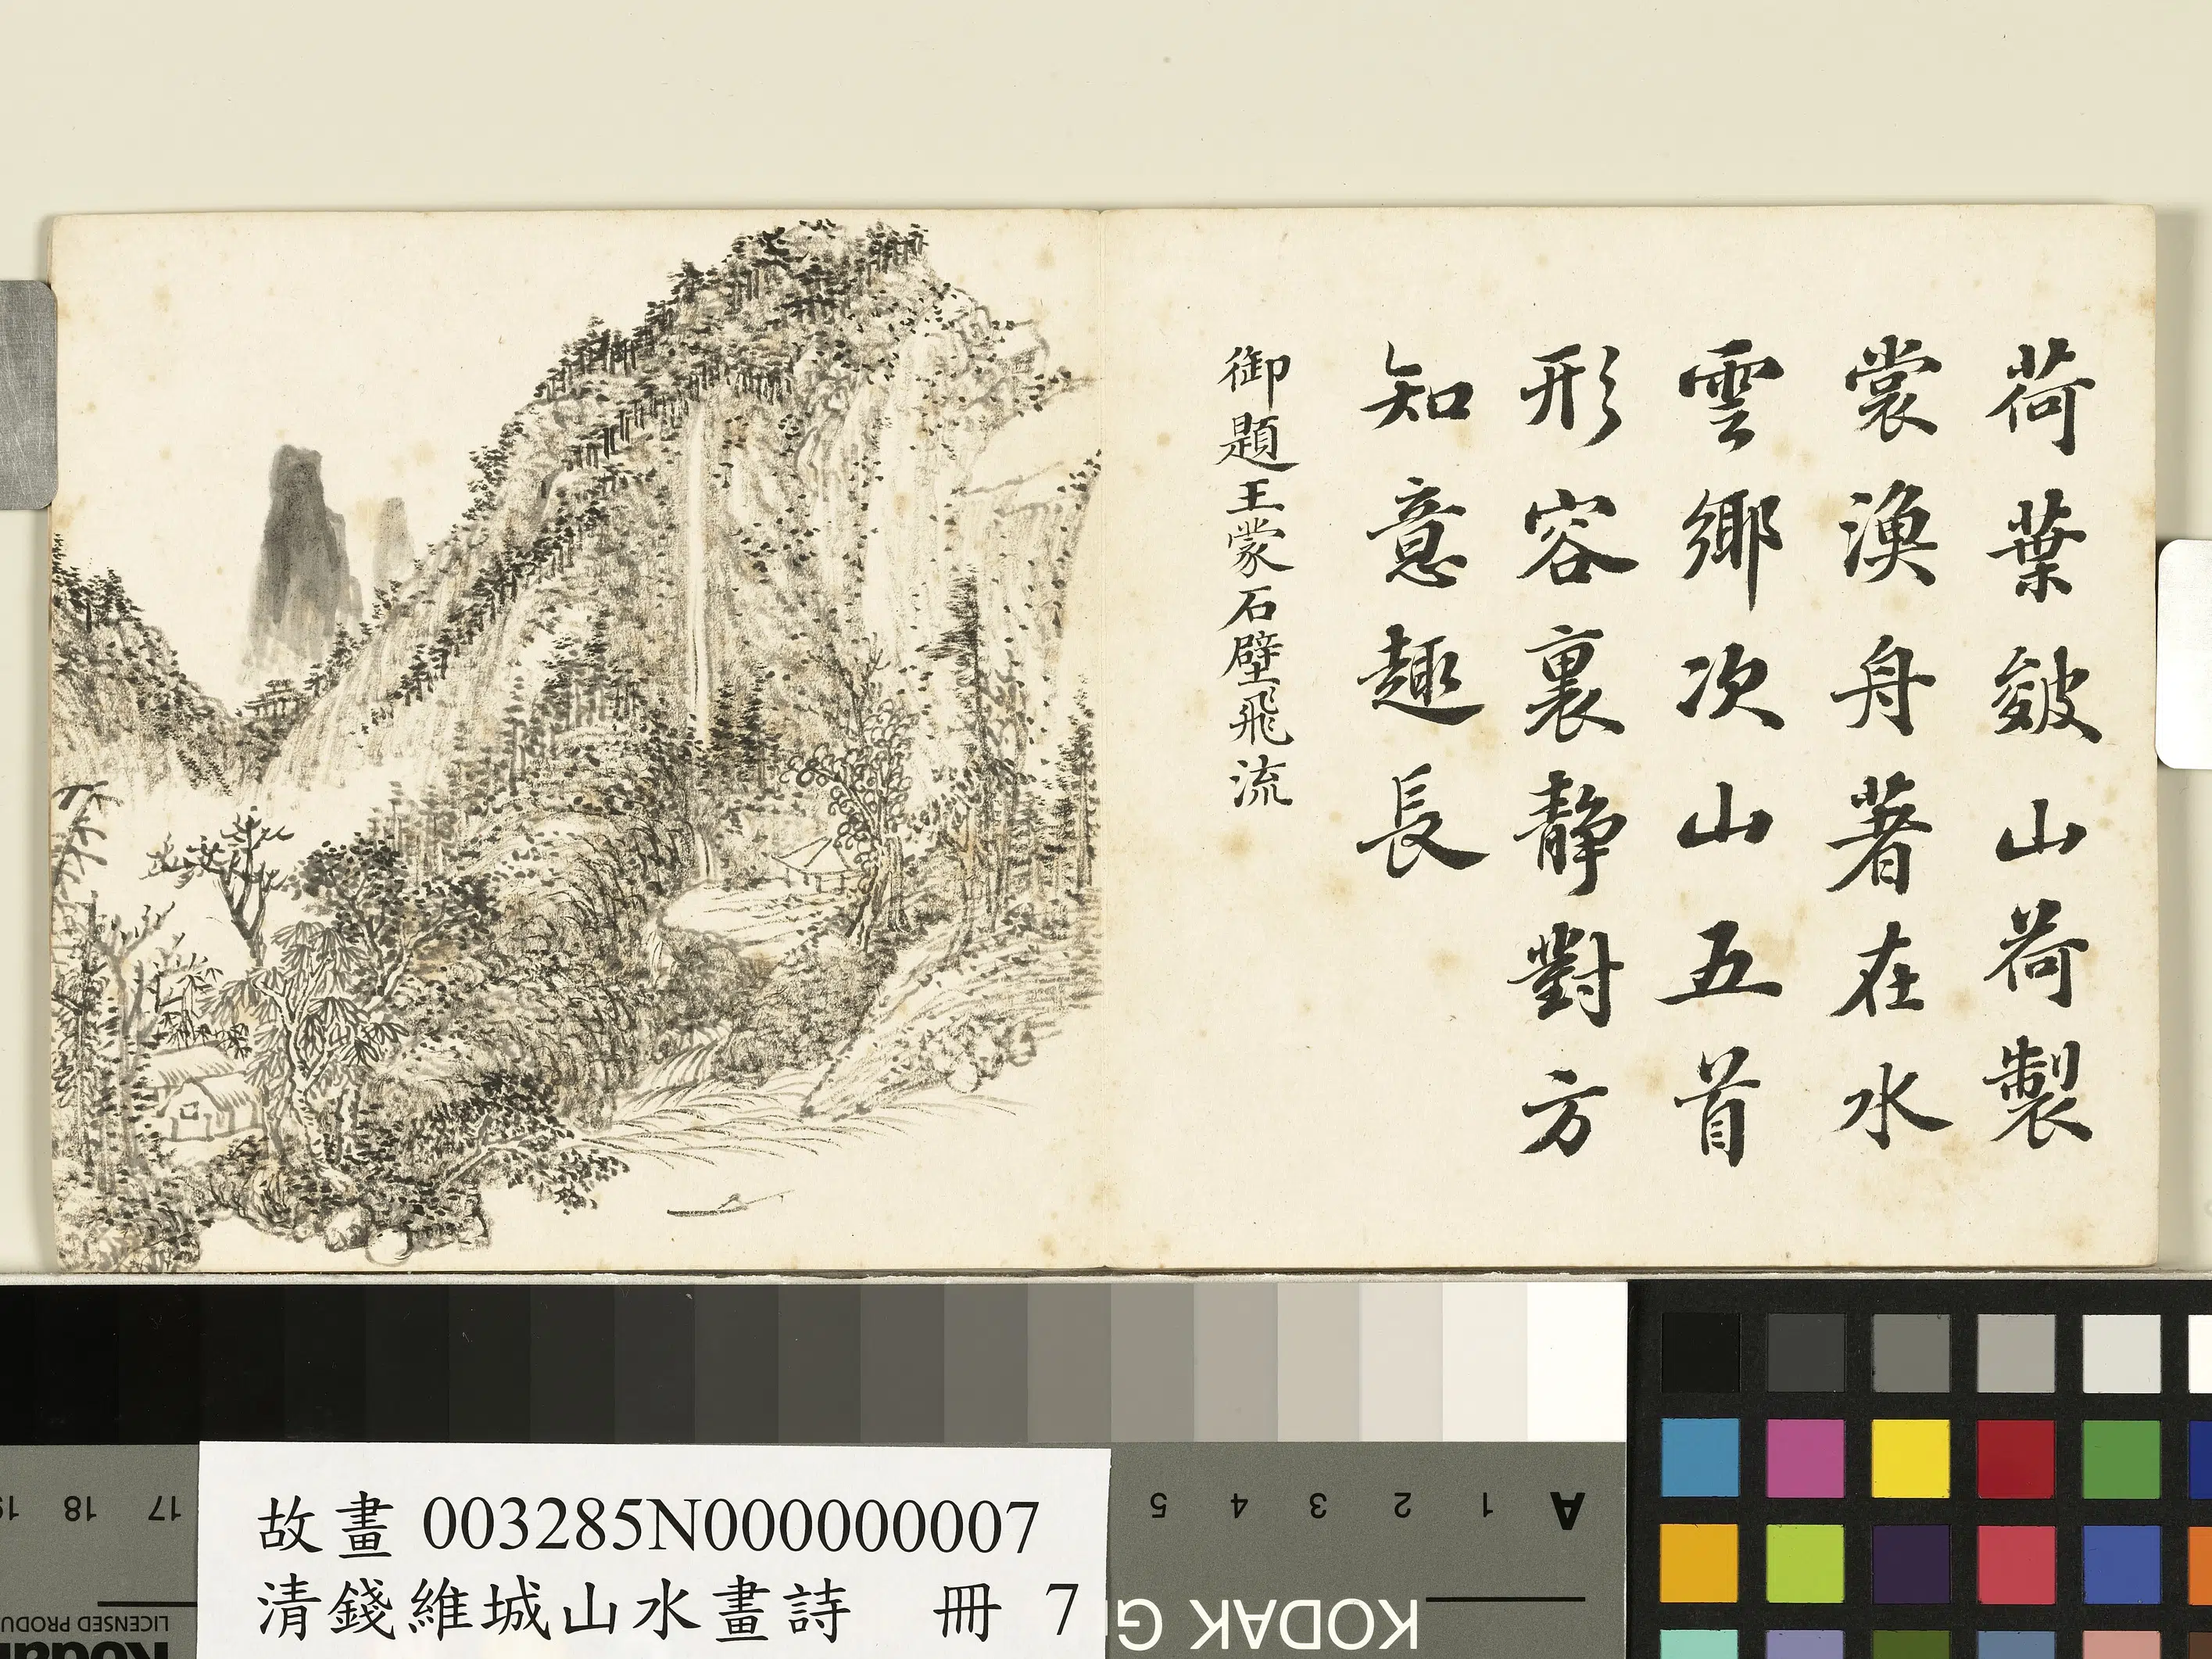 荷葉皴山荷製
裳漁舟著在水
雲鄉次山五首
形容裏靜對方
知意趣長
御題王蒙石壁飛流
故畫 003285N000000007
清錢維城山水畫詩 冊 7
A 1 2 3 4 5
17 18 19
KODAK G
LICENSED PRODU
Kodak